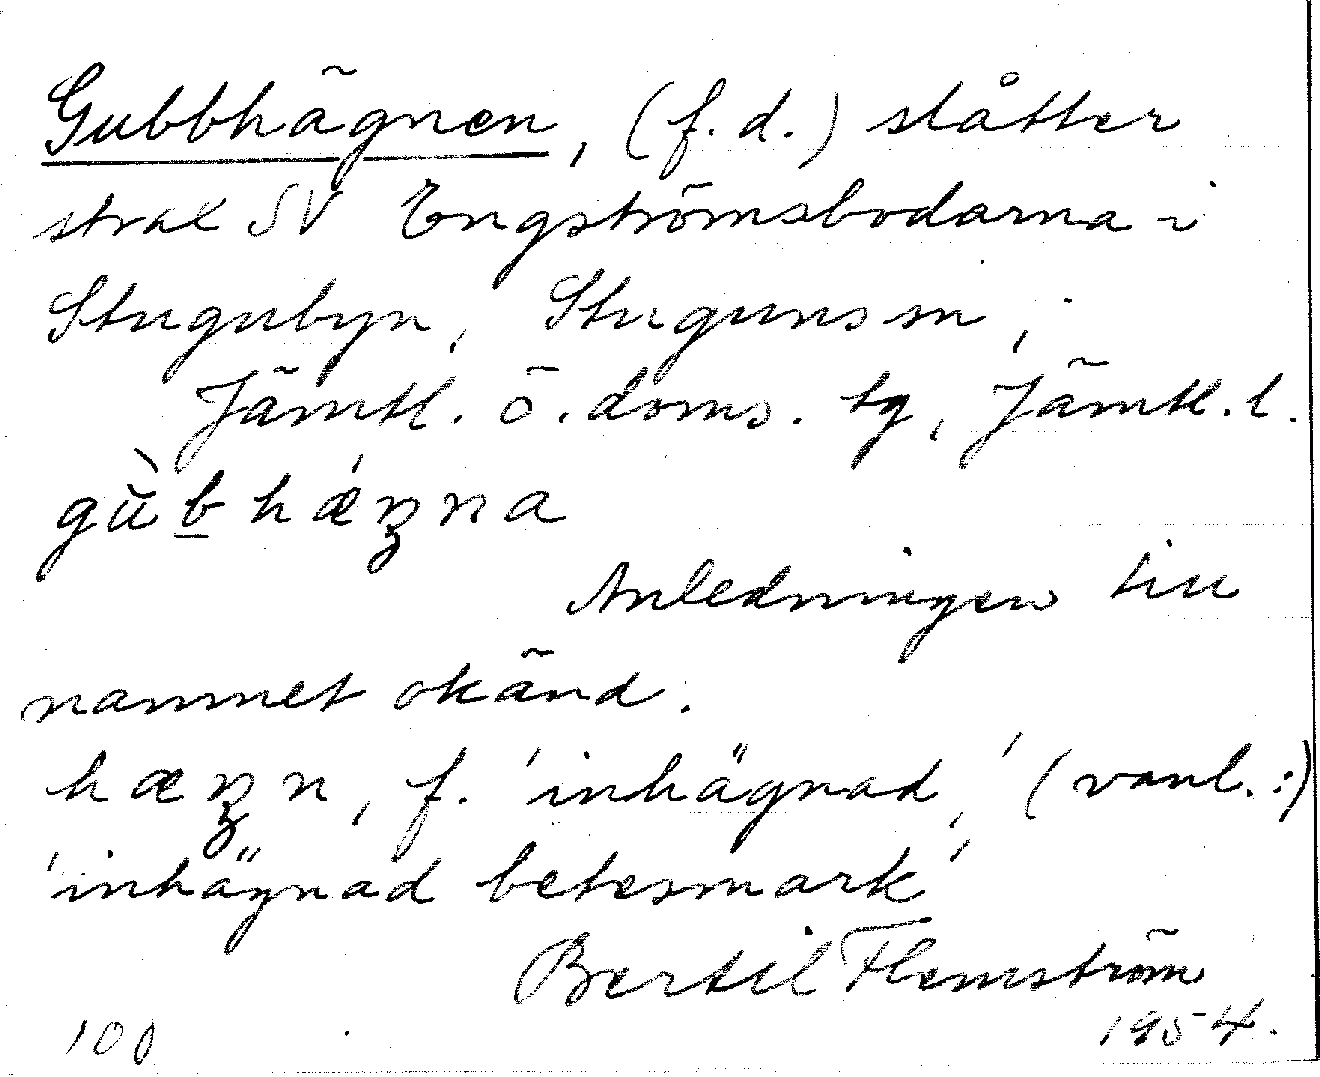 Gubbhägnen, (f.d.) slåtter
strax SV Engströmsbodarna i
Stugubyn, Stuguns sn,
Jämtl. ö. doms. tg, Jämtl. l.
gùb̲hǽʒna
Anledningen till
namnet okänd.
hæʒn, f. 'inhägnad,' (vanl.:)
'inhägnad betesmark'
Bertil Flemström
1954.
100